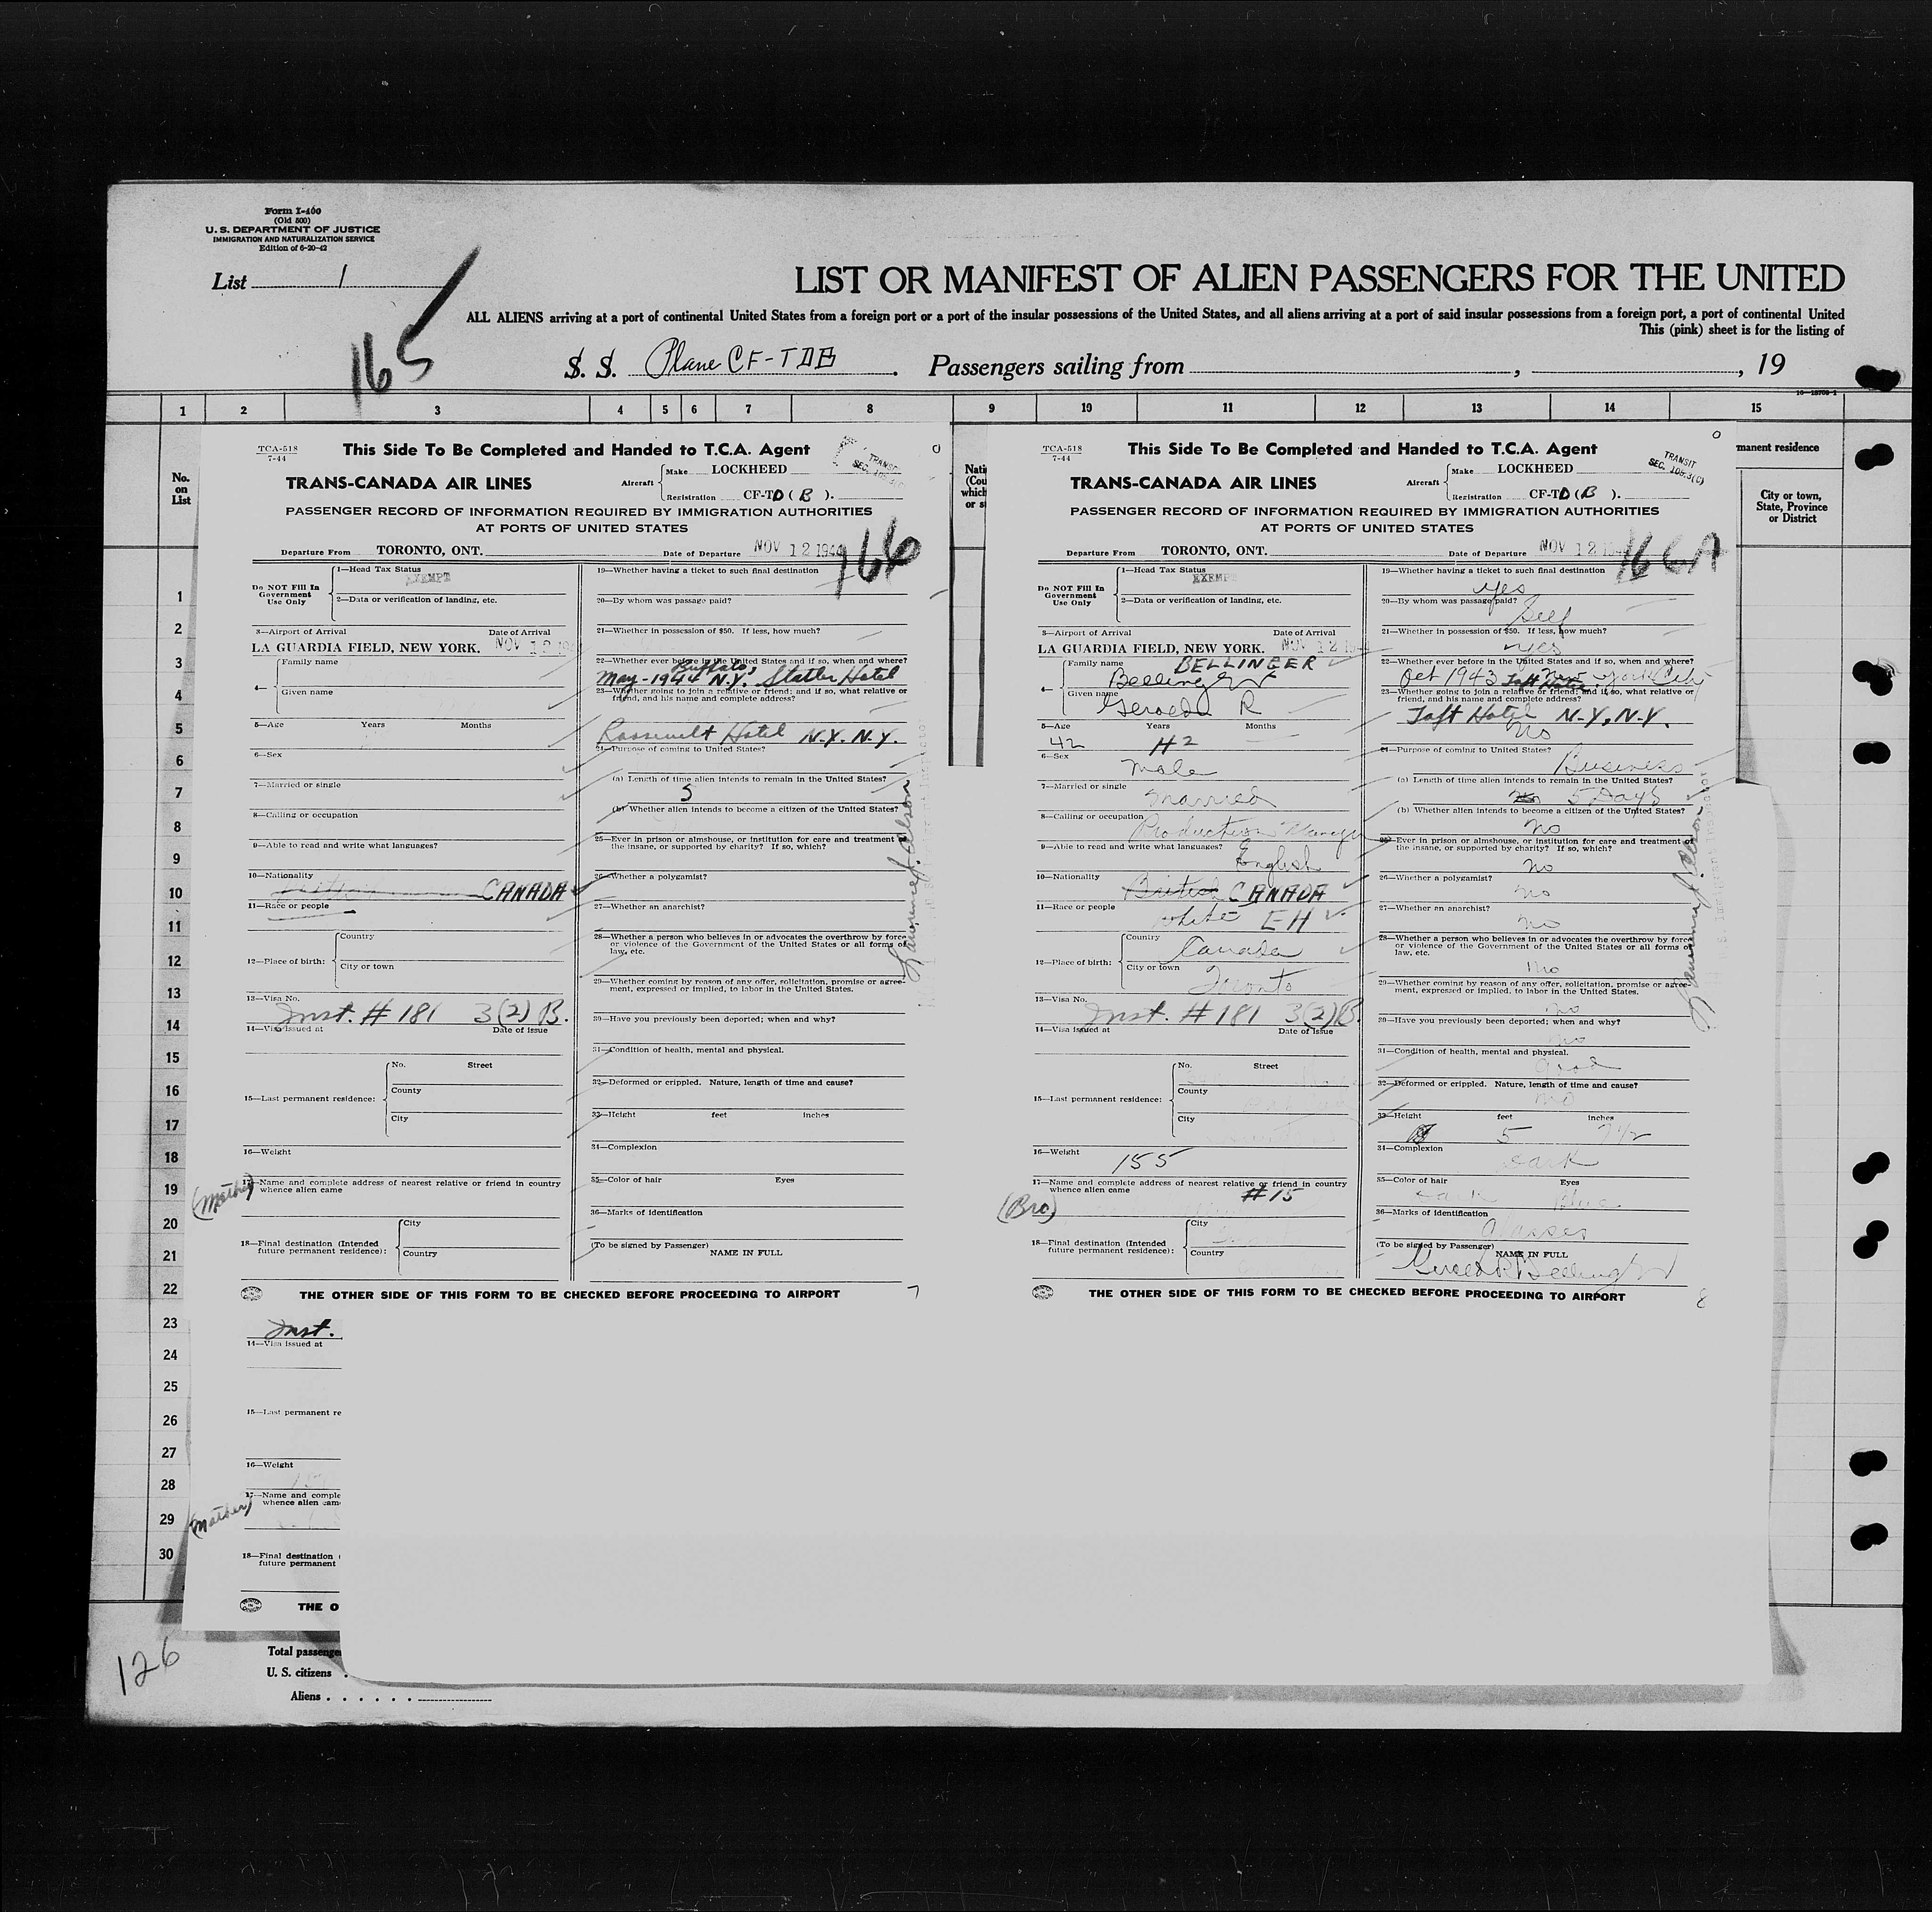 Form I-400
(Old 500)
U. S. DEPARTMENT OF JUSTICE
IMMIGRATION AND NATURALIZATION SERVICE
Edition of 6-20-42
List 1
165
LIST OR MANIFEST OF ALIEN PASSENGERS FOR THE UNITED
ALL ALIENS arriving at a port of continental United States from a foreign port or a port of the insular possessions of the United States, and all aliens arriving at a port of said insular possessions from a foreign port, a port of continental United
This (pink) sheet is for the listing of
S. S. Plane CF-TDB. Passengers sailing from , , 19
1 2 3 4 5 6 7 8 9 10 11 12 13 14 15
No.
on
List
manent residence
City or town,
State, Province
or District
1
2
3
4
5
6
7
8
9
10
11
12
13
14
15
16
17
18
19
20
21
22
23
24
25
26
27
28
29
30
TCA-518
7-44
This Side To Be Completed and Handed to T.C.A. Agent
TRANS-CANADA AIR LINES
Aircraft
Make LOCKHEED
Registration CF-TD ( B ).
PASSENGER RECORD OF INFORMATION REQUIRED BY IMMIGRATION AUTHORITIES
AT PORTS OF UNITED STATES
Departure From TORONTO, ONT. Date of Departure NOV 12 1944
166
Do NOT Fill In
Government
Use Only
1—Head Tax Status
EXEMPT
2—Data or verification of landing, etc.
3—Airport of Arrival Date of Arrival
LA GUARDIA FIELD, NEW YORK. NOV 12
4—
Family name
Given name
5—Age Years Months
6—Sex
7—Married or single
8—Calling or occupation
9—Able to read and write what languages?
10—Nationality
CANADA
11—Race or people
12—Place of birth:
Country
City or town
13—Visa No.
Inst. # 181 3(2) B.
14—Visa issued at Date of issue
15—Last permanent residence:
No. Street
County
City
16—Weight
(Mother)
17—Name and complete address of nearest relative or friend in country
whence alien came
18—Final destination (Intended
future permanent residence):
City
Country
19—Whether having a ticket to such final destination
20—By whom was passage paid?
21—Whether in possession of $50. If less, how much?
22—Whether ever before in the United States and if so, when and where?
Buffalo,
May-1944 N.Y. Statler Hotel
23—Whether going to join a relative or friend; and if so, what relative or
friend, and his name and complete address?
Roosevelt Hotel N.Y. N.Y.
24—Purpose of coming to United States?
(a) Length of time alien intends to remain in the United States?
5
(b) Whether alien intends to become a citizen of the United States?
25—Ever in prison or almshouse, or institution for care and treatment of
the insane, or supported by charity? If so, which?
26—Whether a polygamist?
27—Whether an anarchist?
28—Whether a person who believes in or advocates the overthrow by force
or violence of the Government of the United States or all forms of
law, etc.
29—Whether coming by reason of any offer, solicitation, promise or agree-
ment, expressed or implied, to labor in the United States.
30—Have you previously been deported; when and why?
31—Condition of health, mental and physical.
32—Deformed or crippled. Nature, length of time and cause?
33—Height feet inches
34—Complexion
35—Color of hair Eyes
36—Marks of identification
(To be signed by Passenger)
NAME IN FULL
THE OTHER SIDE OF THIS FORM TO BE CHECKED BEFORE PROCEEDING TO AIRPORT
7
Inst.
14—Visa issued at
15—Last permanent re
16—Weight
(Mother)
17—Name and comple
whence alien cam
18—Final destination (
future permanent
THE O
Total passenge
U. S. citizens .
Aliens . . . . . .
126
Nati
(Cou
which
or s
TCA-518
7-44
This Side To Be Completed and Handed to T.C.A. Agent
TRANSIT
TRANS-CANADA AIR LINES
Aircraft
Make LOCKHEED
Registration CF-TD (B ).
PASSENGER RECORD OF INFORMATION REQUIRED BY IMMIGRATION AUTHORITIES
AT PORTS OF UNITED STATES
Departure From TORONTO, ONT. Date of Departure NOV 12
166A
Do NOT Fill In
Government
Use Only
1—Head Tax Status
EXEMPT
2—Data or verification of landing, etc.
3—Airport of Arrival Date of Arrival
LA GUARDIA FIELD, NEW YORK. NOV 12
4—
Family name BELLINGER
Bellinger
Given name
Gerald R
5—Age Years Months
42 42
6—Sex
Male
7—Married or single
Married
8—Calling or occupation
Production Manager
9—Able to read and write what languages?
English
10—Nationality
British CANADA
11—Race or people
White EH
12—Place of birth:
Country
Canada
City or town
Toronto
13—Visa No.
Inst. # 181 3(2) B.
14—Visa issued at Date of issue
15—Last permanent residence:
No. Street
County
City
16—Weight
155
17—Name and complete address of nearest relative or friend in country
whence alien came
#15
(Bro)
18—Final destination (Intended
future permanent residence):
City
Country
19—Whether having a ticket to such final destination
Yes
20—By whom was passage paid?
Self
21—Whether in possession of $50. If less, how much?
Yes
22—Whether ever before in the United States and if so, when and where?
Oct 1943 Taft Hotel New York City
23—Whether going to join a relative or friend; and if so, what relative or
friend, and his name and complete address?
Taft Hotel N.Y., N.Y.
No
24—Purpose of coming to United States?
Business
(a) Length of time alien intends to remain in the United States?
5 Days
(b) Whether alien intends to become a citizen of the United States?
No
25—Ever in prison or almshouse, or institution for care and treatment of
the insane, or supported by charity? If so, which?
No
26—Whether a polygamist?
No
27—Whether an anarchist?
No
28—Whether a person who believes in or advocates the overthrow by force
or violence of the Government of the United States or all forms of
law, etc.
No
29—Whether coming by reason of any offer, solicitation, promise or agree-
ment, expressed or implied, to labor in the United States.
No
30—Have you previously been deported; when and why?
No
31—Condition of health, mental and physical.
Good
32—Deformed or crippled. Nature, length of time and cause?
No
33—Height feet inches
5 7½
34—Complexion
Dark
35—Color of hair Eyes
Dark Blue
36—Marks of identification
Glasses
(To be signed by Passenger)
NAME IN FULL
Gerald R Bellinger
THE OTHER SIDE OF THIS FORM TO BE CHECKED BEFORE PROCEEDING TO AIRPORT
8